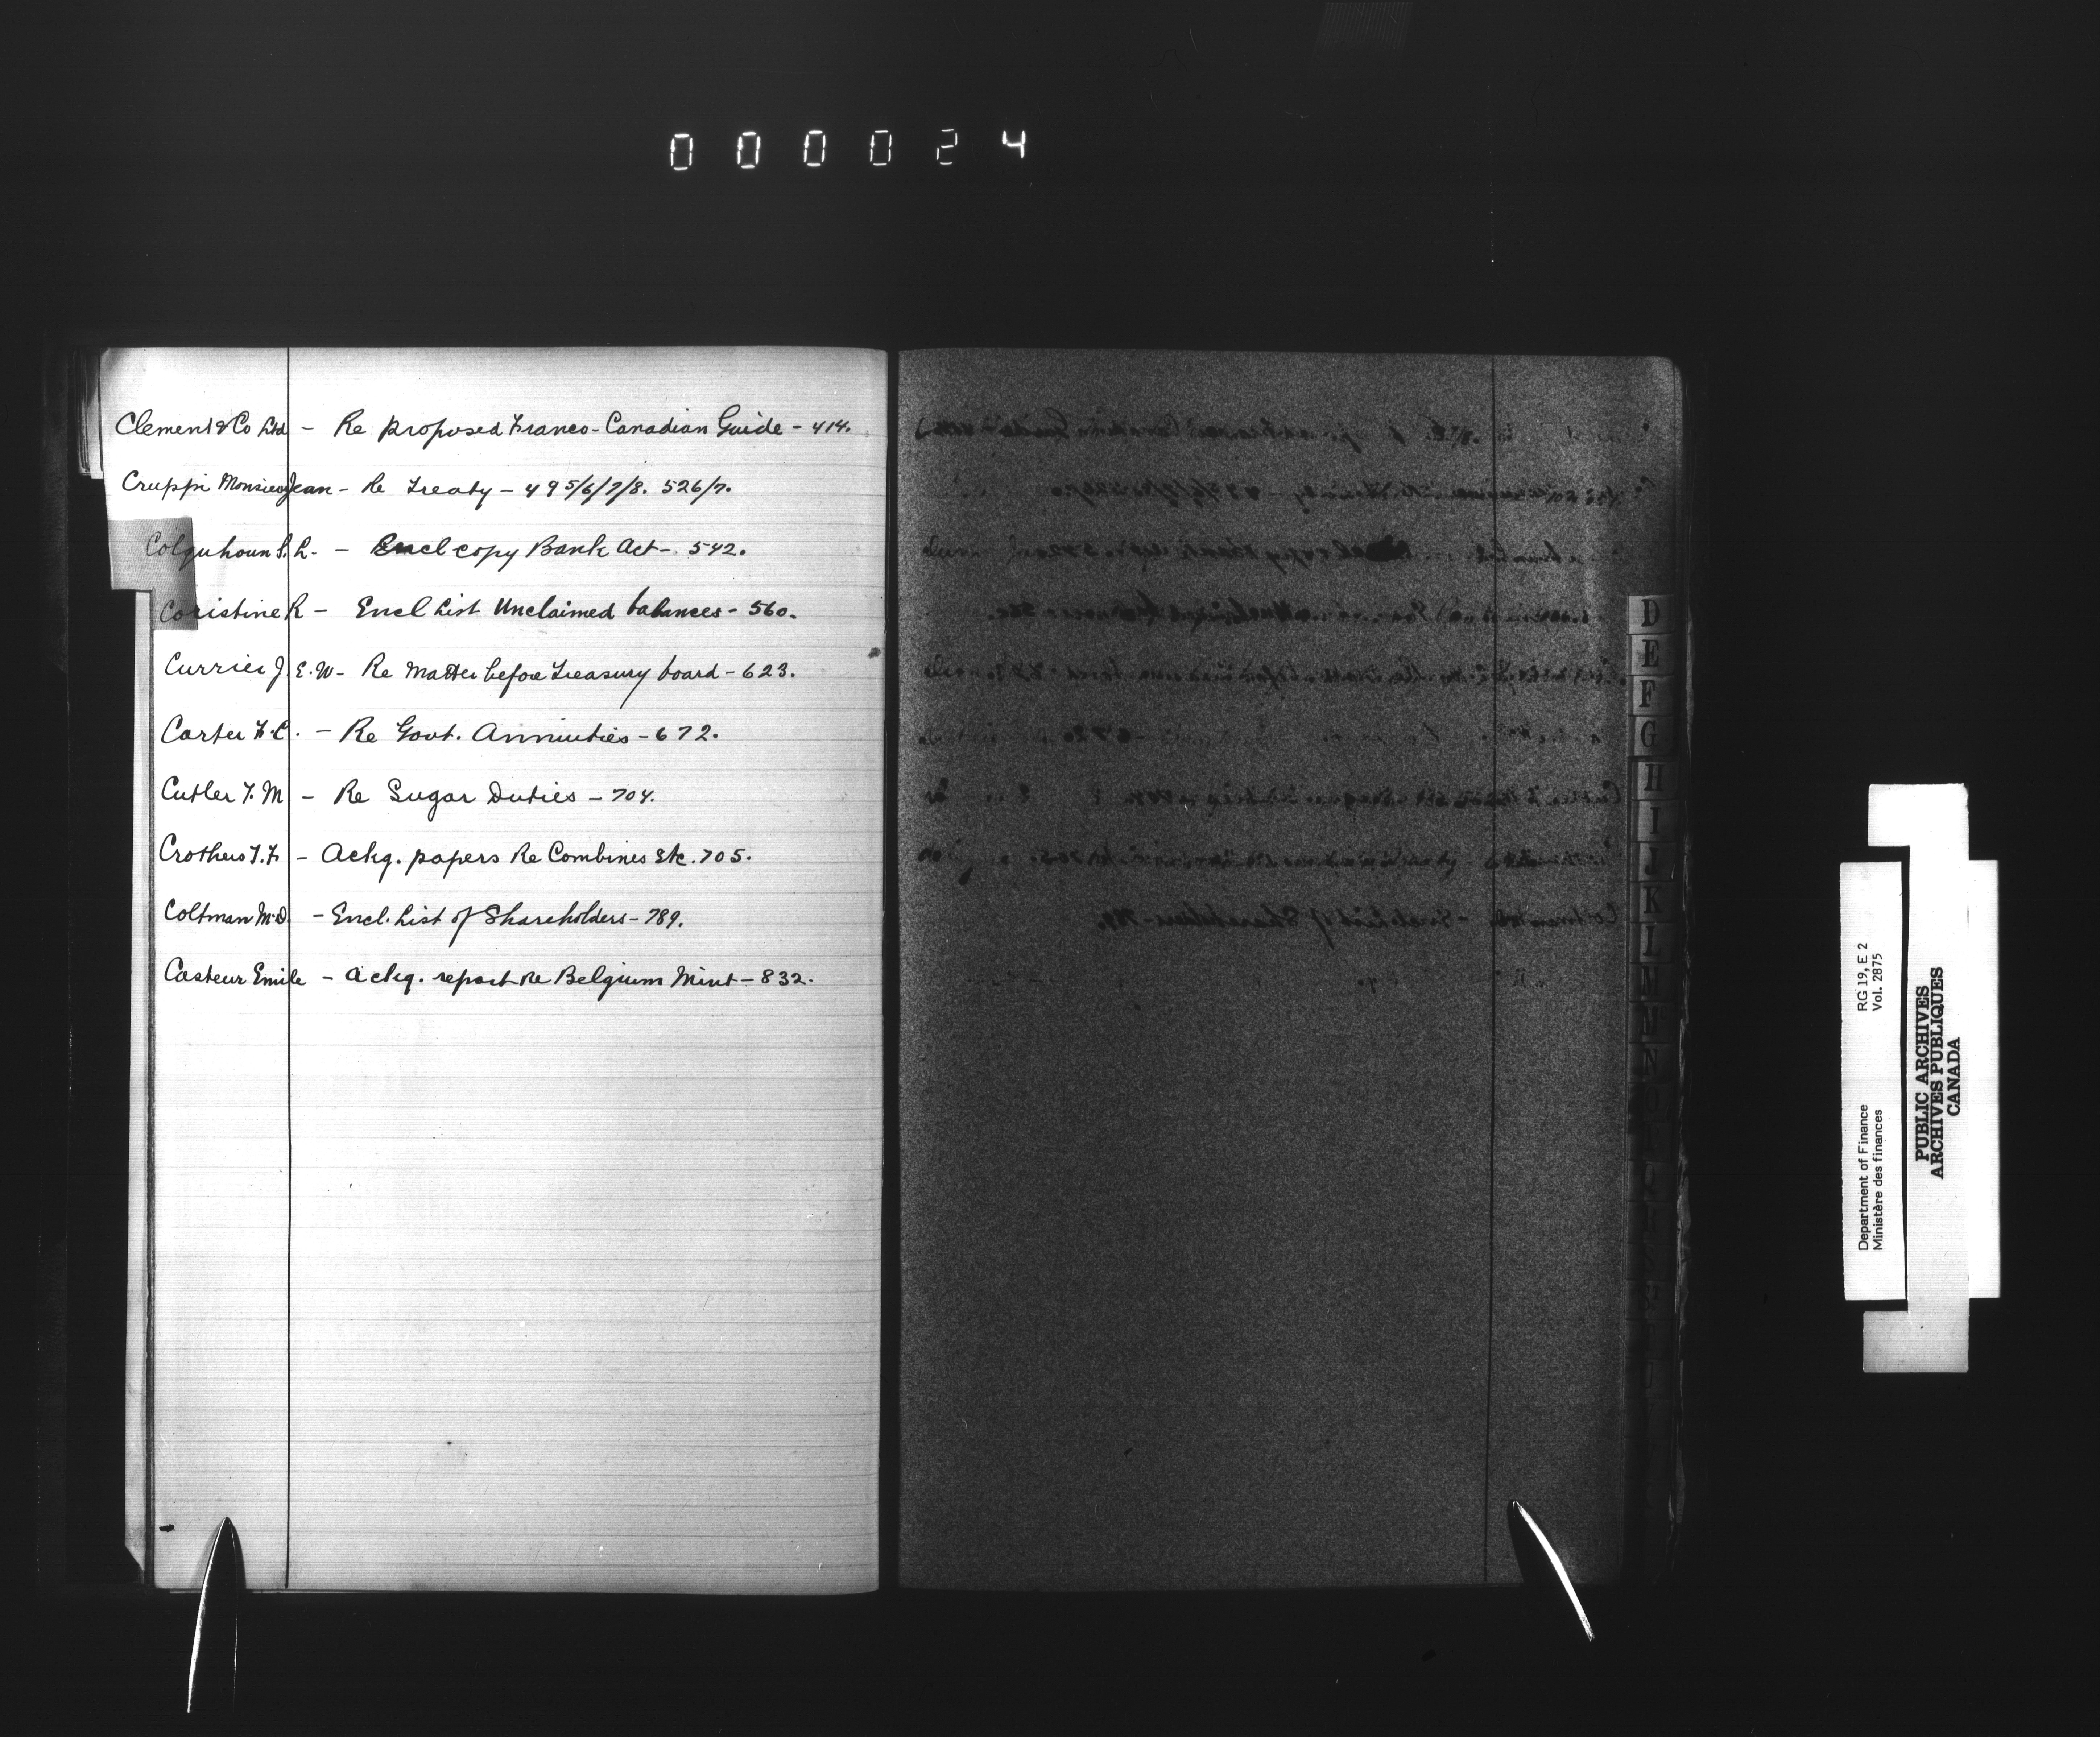 000024
Clement & Co Ltd - Re proposed Franco-Canadian Guide - 414.
Cruppi Monsieur Jean - Re Treaty - 495/6/7/8. 526/7.
Colquhoun S. L. - Encl copy Bank Act - 542.
Coristine R - Encl List Unclaimed balances - 560.
Currier J. E. W - Re Matter before Treasury board - 623.
Carter F. C. - Re Govt. Annuities - 672.
Cutler T. M - Re Sugar Duties - 704.
Crothers T. F - Ackg. papers Re Combines Etc. 705.
Coltman M. D. - Encl. List of Shareholders - 789.
Casteur Emile - Ackg. report Re Belgium Mint - 832.
D
E
F
G
H
I
J
K
L
M
N
O
Department of Finance
Ministère des finances
RG 19, E 2
Vol. 2875
PUBLIC ARCHIVES
ARCHIVES PUBLIQUES
CANADA